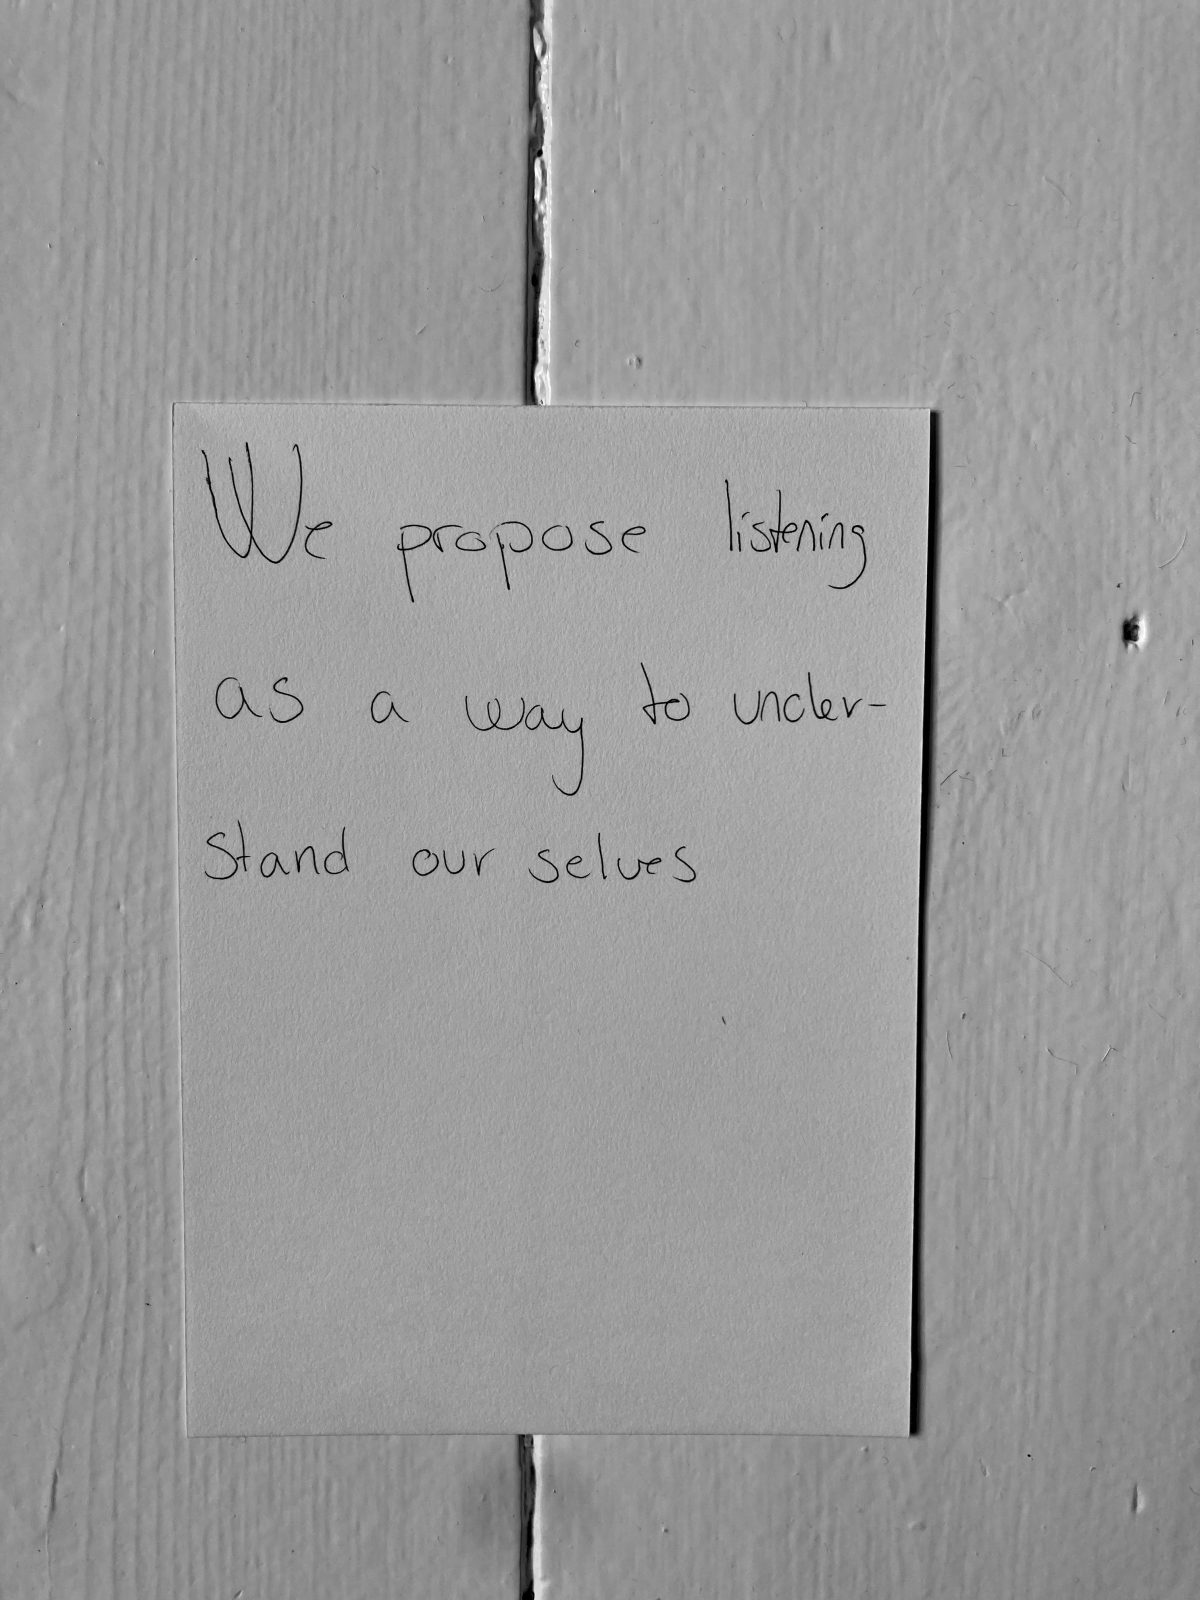 We propose listening
as a way to under-
stand our selves